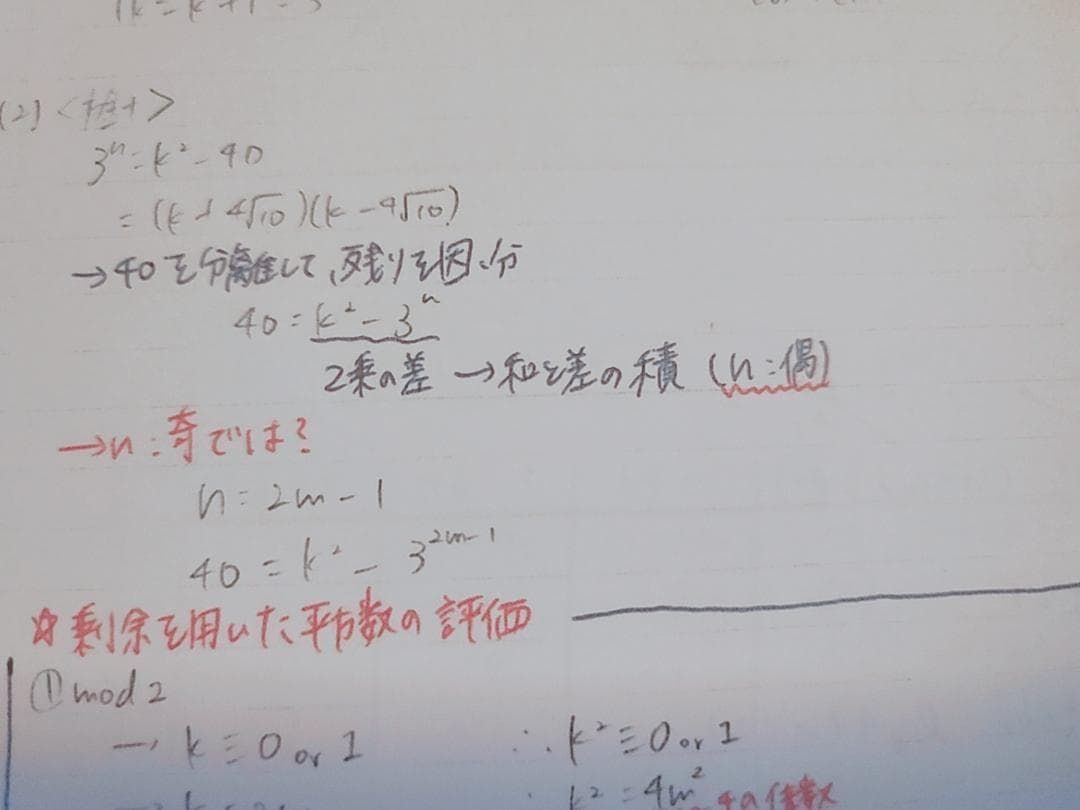 (2) <検討>
3ⁿ = k² - 40
= (k + 4√10)(k - 4√10)
→ 40を分離して、残りを因、分
40 = k² - 3ⁿ
2乗の差 → 和と差の積 (n:偶)
→ n:奇では?
n = 2m - 1
40 = k² - 3^{2m-1}
☆剰余を用いた平方数の評価
① mod 2
→ k ≡ 0 or 1 ∴ k² ≡ 0 or 1
k² = 4m² 4の倍数